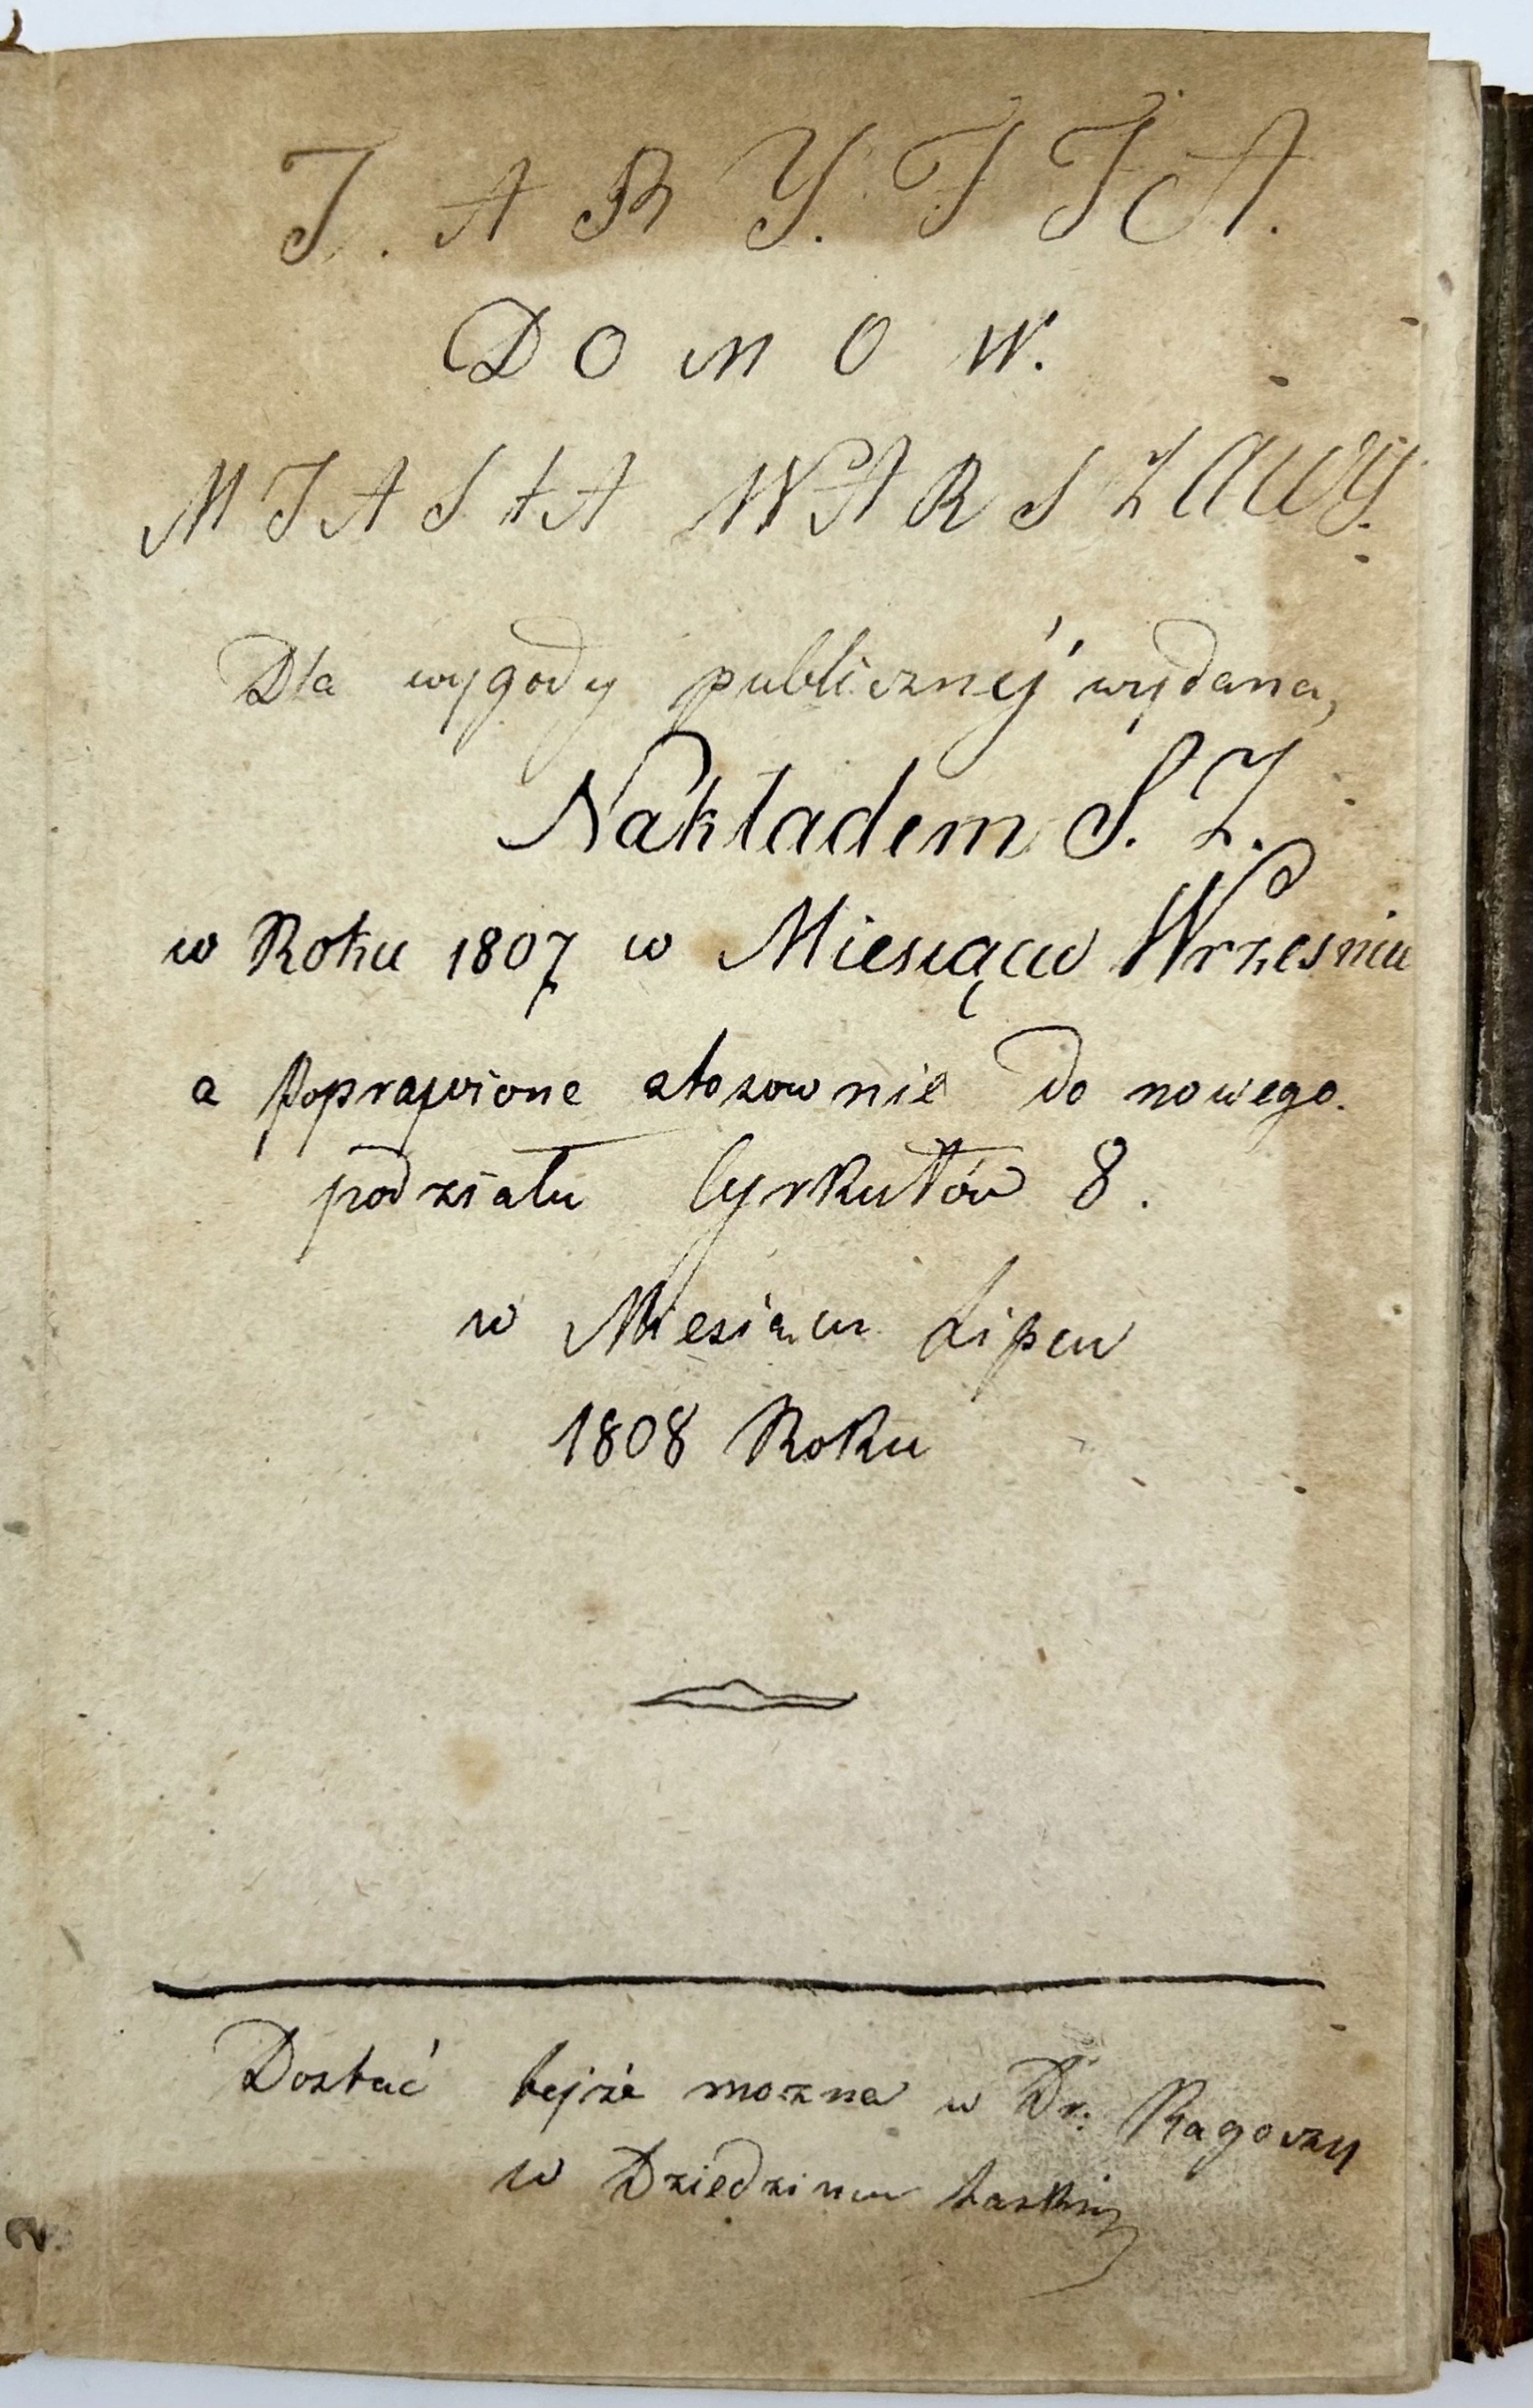 T. A R Y. F F A.
D O M O W.
M I A S T A W A R S Z A W Y.
Dla wygody publicznéj wydana,
Nakładem S. Z.
w Roku 1807 w Miesiącu Wrzesniu
a poprawione stosownie do nowego.
podziału Cyrkułów 8.
w Miesiącu Lipcu
1808 Roku
Dostać tejże mozna w Dr. Ragoczy
w Dziedzincu
2.